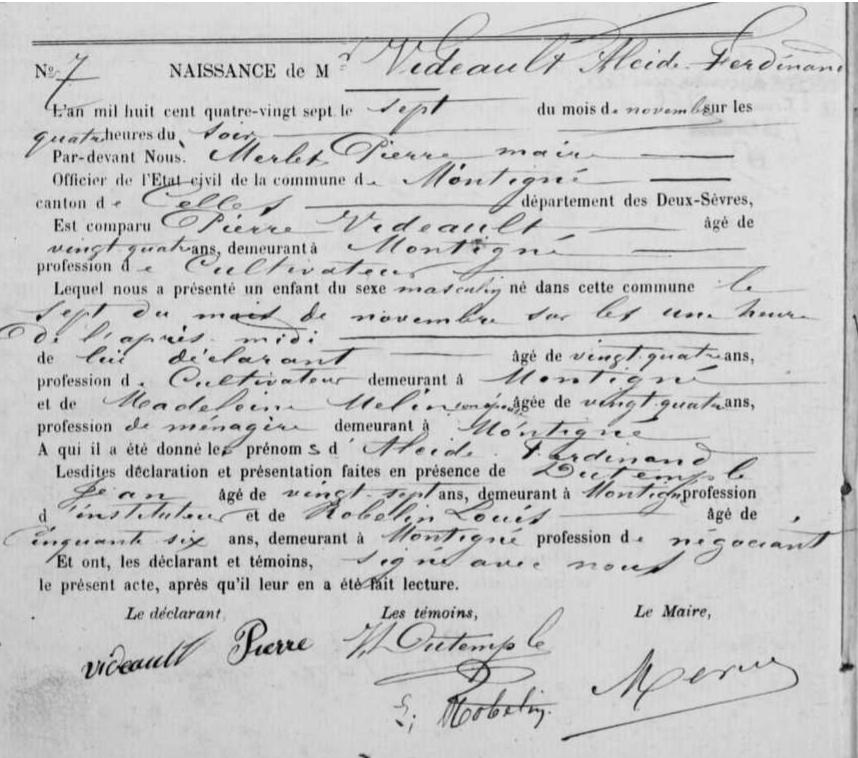 No 7 NAISSANCE de Mr Videault Alcide Ferdinand
L'an mil huit cent quatre-vingt sept le sept du mois de novembre sur les
quatre heures du soir
Par-devant Nous, Merlet Pierre maire
Officier de l'Etat civil de la commune de Montigné
canton de Celles département des Deux-Sèvres,
Est comparu Pierre Videault âgé de
vingt-quatre ans, demeurant à Montigné
profession de Cultivateur
Lequel nous a présenté un enfant du sexe masculin né dans cette commune le
sept du mois de novembre sur les une heure
de l'après-midi
de lui déclarant âgé de vingt-quatre ans,
profession de Cultivateur demeurant à Montigné
et de Madeleine Melin âgée de vingt-quatre ans,
profession de ménagère demeurant à Montigné
A qui il a été donné les prénoms d'Alcide Ferdinand
Lesdites déclaration et présentation faites en présence de Dutemple
Jean âgé de vingt-sept ans, demeurant à Montigné profession
d'instituteur et de Robelin Louis âgé de
cinquante six ans, demeurant à Montigné profession de négociant
Et ont, les déclarant et témoins, signé avec nous
le présent acte, après qu'il leur en a été fait lecture.
Le déclarant, Les témoins, Le Maire,
Videault Pierre Dutemple
Robelin